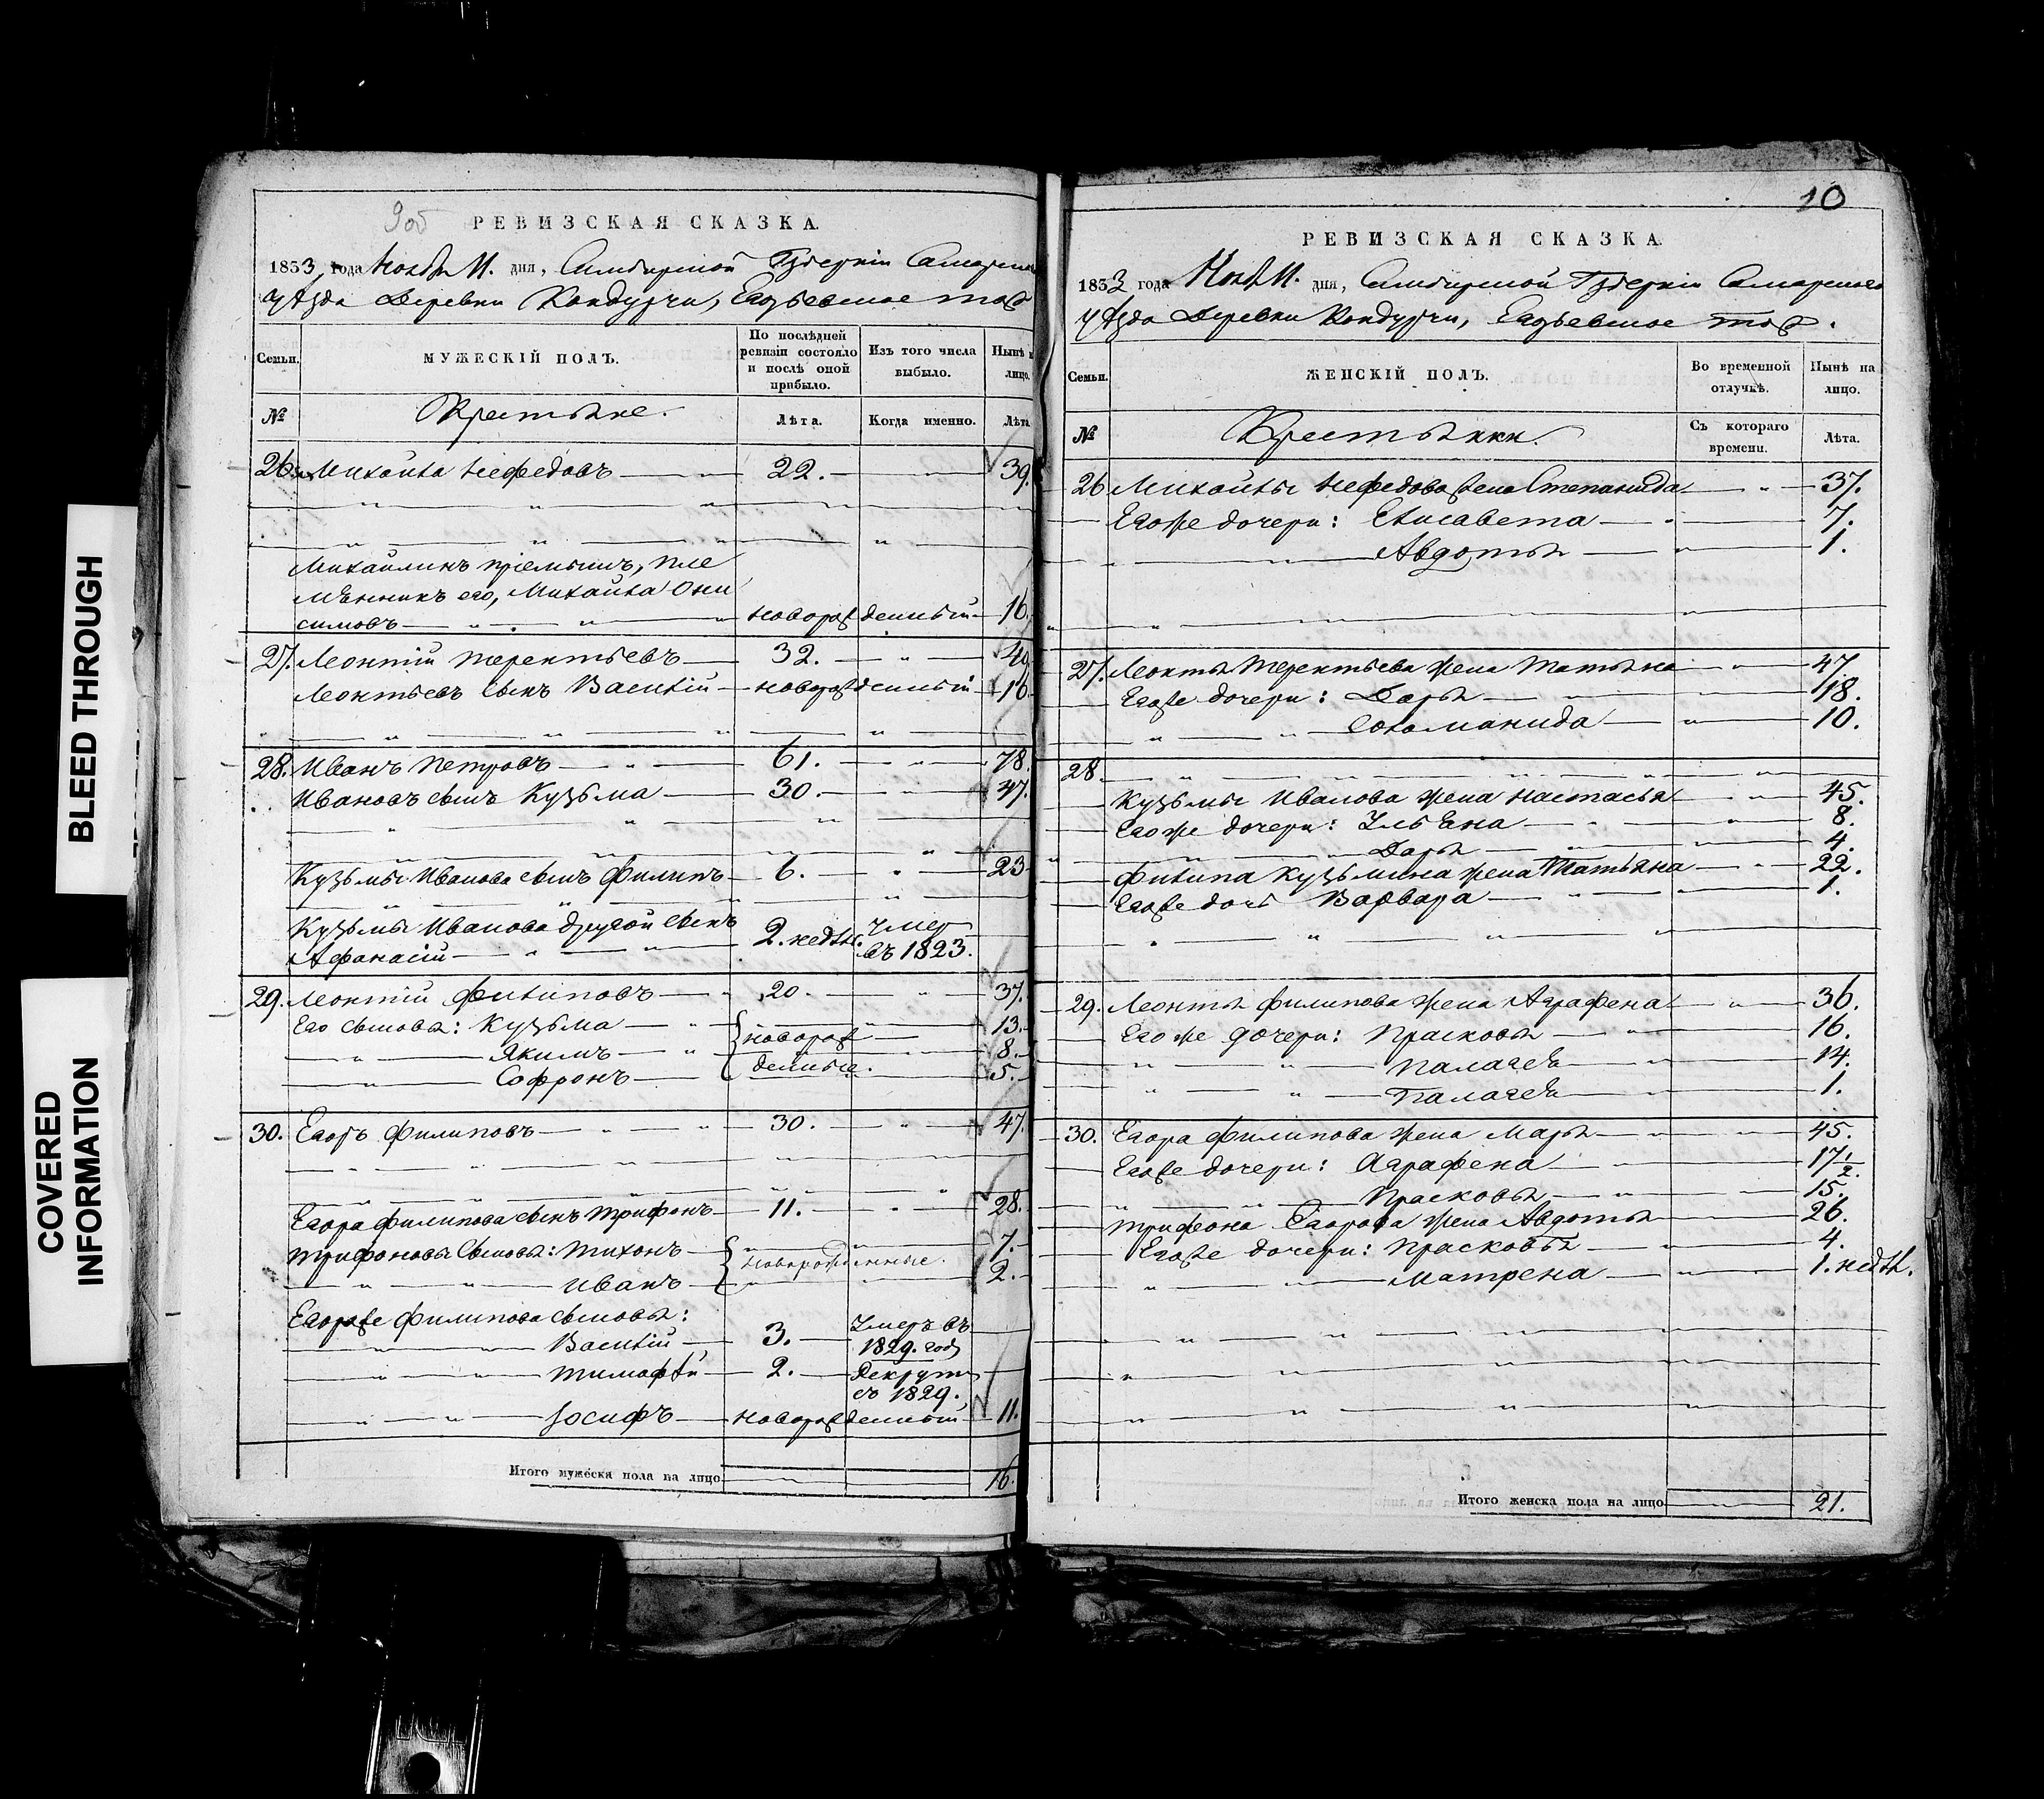 BLEED THROUGH
COVERED INFORMATION
9об
РЕВИЗСКАЯ СКАЗКА.
1853 года Ноября 11. дня, Симбирской Губерніи Самарскаго
Уѣзда Деревни Кондурчи,
Семьи.
МУЖЕСКІЙ ПОЛЪ.
По послѣдней ревизіи состояло и послѣ оной прибыло.
Изъ того числа выбыло.
Нынѣ на лицо.
№
Крестьяне.
Лѣта.
Когда именно.
Лѣта
26. Михайла Нефедовъ 22. 39.
Михайлинъ пріемышъ, пле
мѣнникъ его, Михайла Они
симовъ новорожденный 16.
27. Леонтій Терентьевъ 32. 49
Леонтьевъ сынъ Василій новорожденный 16
28. Иванъ Петровъ 61. 78.
Ивановъ сынъ Кузьма 30. 47.
Кузьмы Иванова сынъ Филипъ 6. 23
Кузьмы Иванова другой сынъ
Афанасій 2. недѣл. Умер въ 1823.
29. Леонтій Филиповъ 20. 37.
Его сыновья: Кузьма новорож 13.
Якимъ 8.
Софронъ денные. 5.
30. Егоръ Филиповъ 30. 47.
Егора Филипова сынъ Трифонъ 11. 28.
Трифоновы сыновья: Тихонъ новорожденные. 7.
Иванъ 2.
Егораже Филипова сыновья:
Василій 3. Умеръ въ 1829. году
Тимофѣй 2. Рекрутъ съ 1829.
Іосифъ новорожденный 11.
Итого мужеска пола на лицо 16.
10
РЕВИЗСКАЯ СКАЗКА
1853 года Нояб 11. дня, Симбирской Губерніи Самарскаго
Уѣзда Деревни Кондурчи,
Семьи.
ЖЕНСКІЙ ПОЛЪ.
Во временной отлучкѣ.
Нынѣ на лицо.
№
Крестьянки.
Съ котораго времени.
Лѣта.
26 Михайлы Нефедова жена Степанида 37.
Егоже дочери: Елисавета 7.
Авдотья 1.
27. Леонтья Терентьева жена Татьяна 47
Егоже дочери: Дарья 18.
Соломанида 10.
28.
Кузьмы Иванова жена Настасья 45.
Егоже дочери: Ульяна 8.
Дарья 4.
Филипа Кузьмина жена Татьяна 22.
Егоже дочь Варвара 1.
29. Леонтья Филипова жена Аграфена 36.
Егоже дочери: Прасковья 16.
Палагея 14.
Палагея 1.
30. Егора Филипова жена Марья 45.
Егоже дочери: Аграфена 17 1/2.
Прасковья 15.
Трифона Егорова жена Авдотья 26.
Егоже дочери: Прасковья 4.
Матрена 1. недѣл.
Итого женска пола на лицо 21.